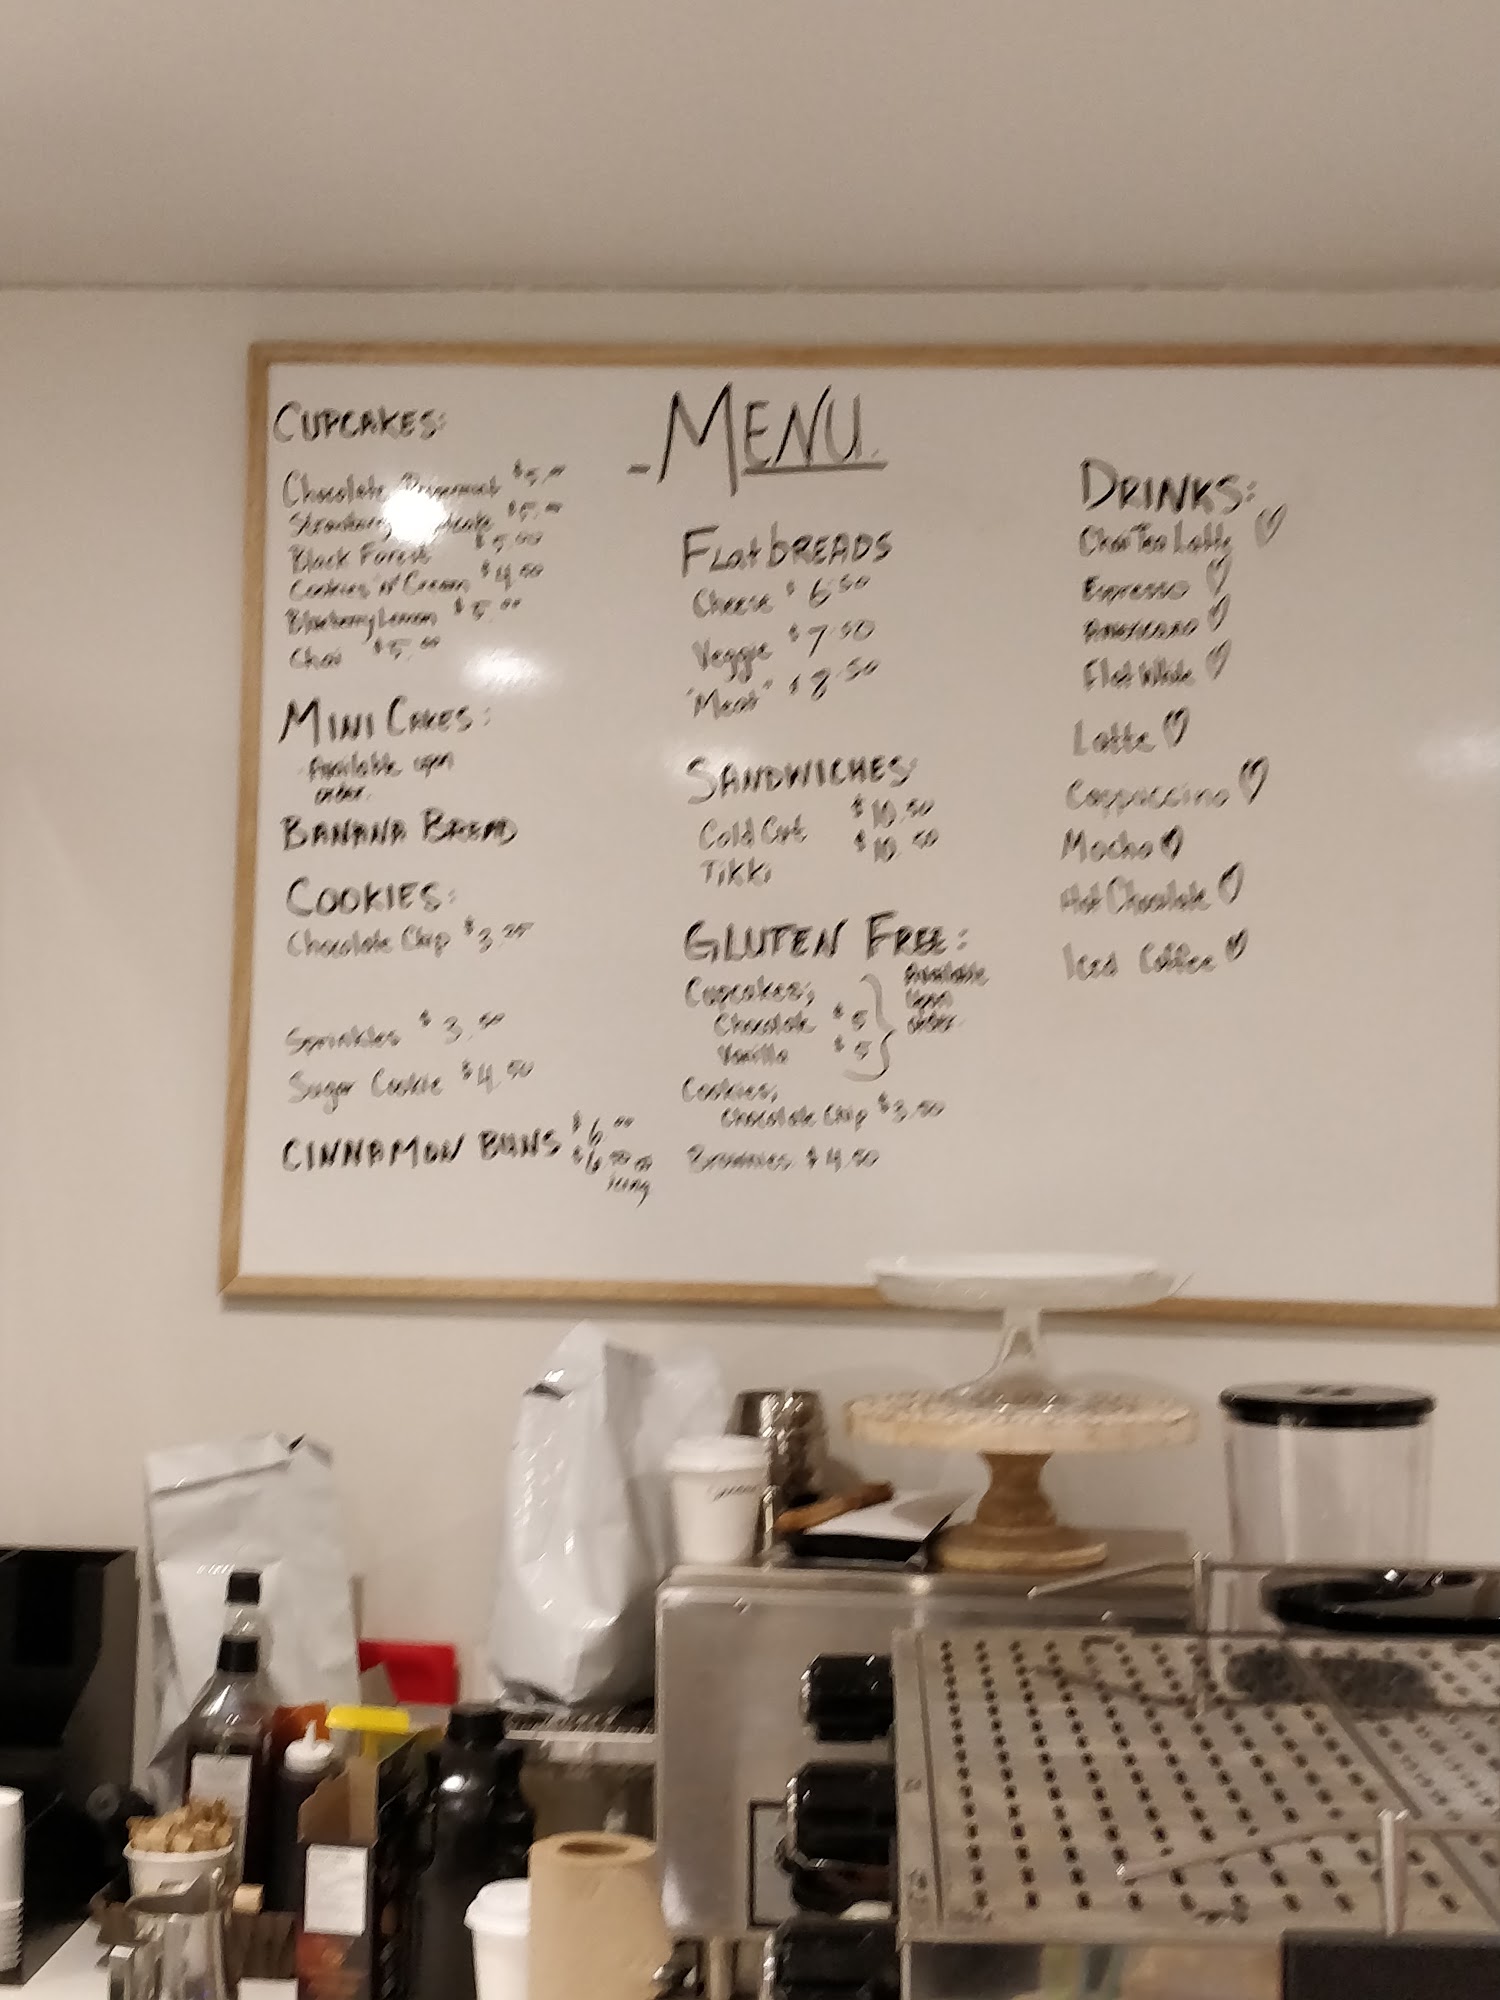 MENU
CUPCAKES:
Chocolate $5.00
Strawberry $5.00
Black Forest $5.00
Cookies 'n' Cream $4.50
Blueberry Lemon $5.00
Chai $5.00
MINI CAKES:
- Available upon
order.
BANANA BREAD
COOKIES:
Chocolate Chip $3.25
Sprinkles $3.50
Sugar Cookie $4.50
CINNAMON BUNS $6.00
$6.50
icing
FlatbREADS
Cheese $6.50
Veggie $7.50
"Meat" $8.50
SANDWICHES:
Cold Cut $10.50
Tikki $10.50
GLUTEN FREE:
Cupcakes; Available
Chocolate $5 upon
Vanilla $5 order.
Cookies;
Chocolate Chip $3.50
Brownies $4.50
DRINKS:
Chai Tea Latte ♡
Espresso ♡
Americano ♡
Flat White ♡
Latte ♡
Cappuccino ♡
Mocha ♡
Hot Chocolate ♡
Iced Coffee ♡